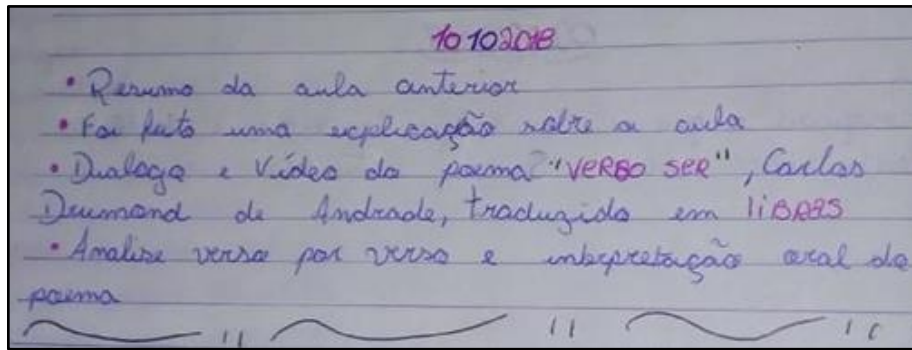 10 10 2018
• Resumo da aula anterior
• Foi feito uma explicação sobre a aula
• Dialogo e Vídeo do poema "VERBO SER", Carlos
Drumond de Andrade, traduzido em liBRAS
• Analise verso por verso e interpretação oral do
poema